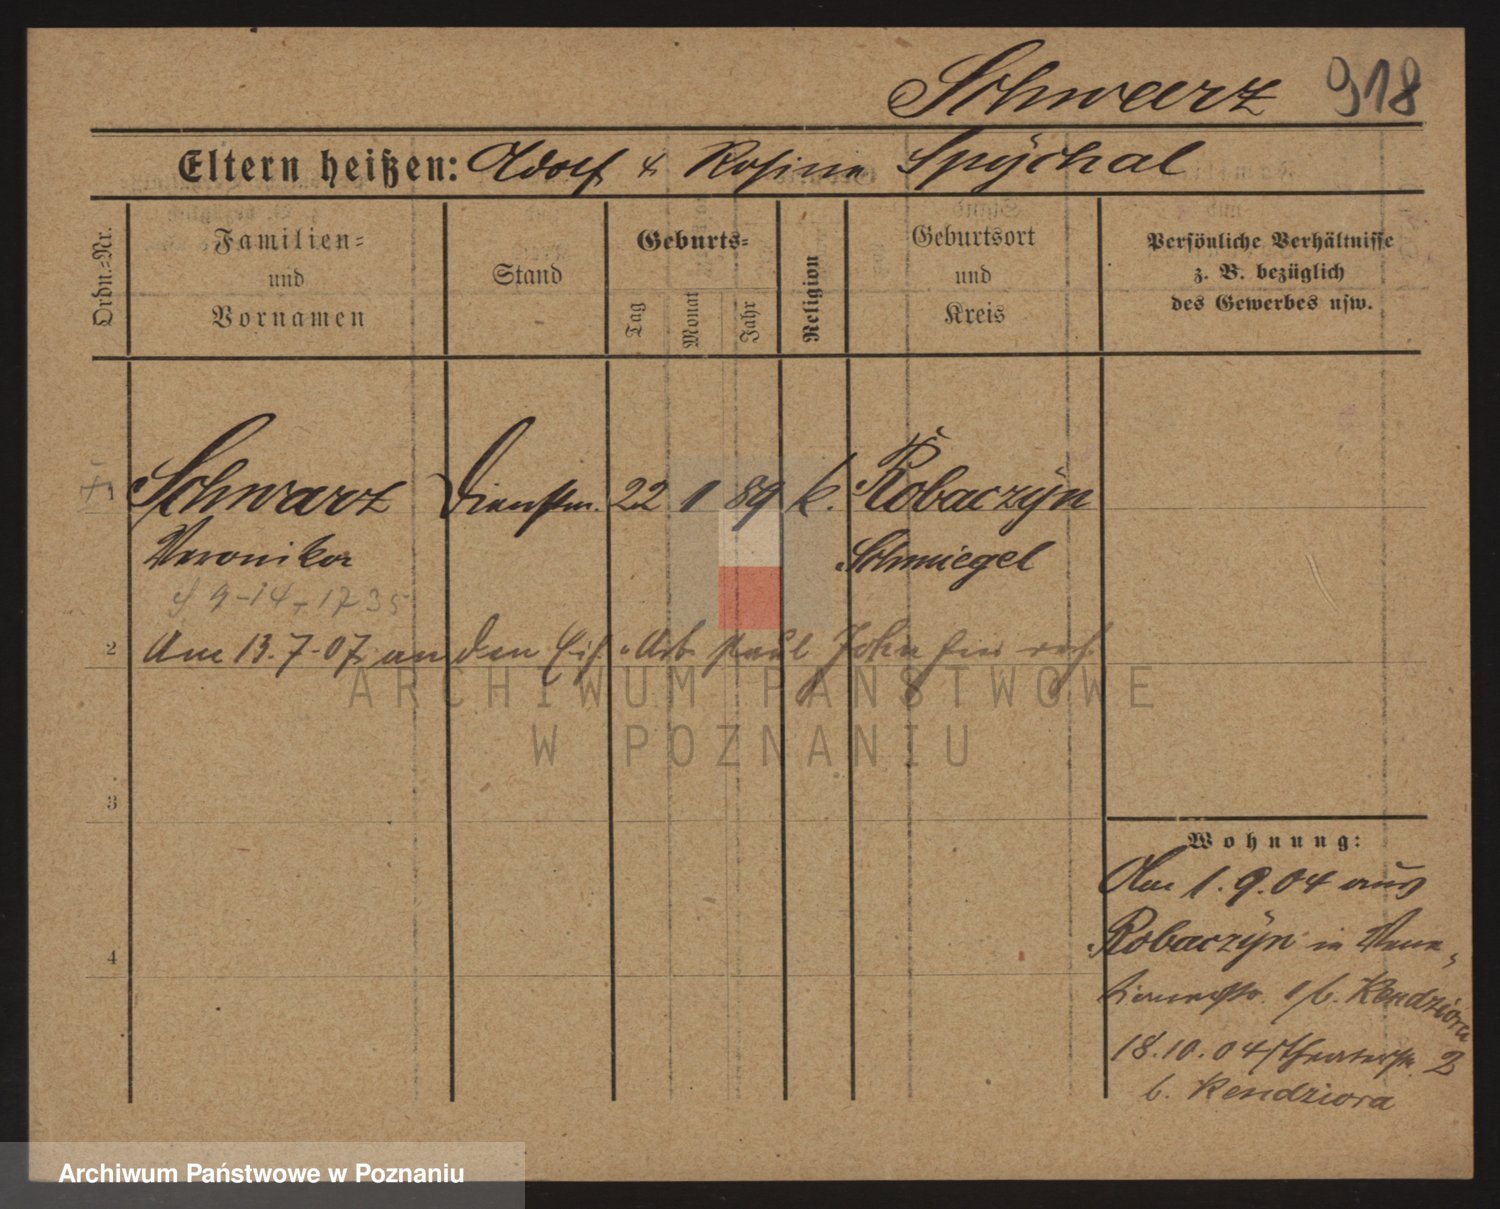 Schwarz 918
Eltern heißen: Adolf & Rosina Spÿchal
Ordn.-Nr.
Familien-
und
Vornamen
Stand
Geburts-
Tag
Monat
Jahr
Religion
Geburtsort
und
Kreis
Persönliche Verhältnisse
z. B. bezüglich
des Gewerbes usw.
1 Schwarz Dienstm. 22 1 89 k. Robaczÿn
Veronika Schmiegel
9-14-1735
2 Am 13.7.07 an den Arb. Paul John
3
4
Wohnung:
Am 1.9.04 aus
Robaczÿn in Vene-
zianerstr. b. Kendziora
18.10.04 Theaterstr. 2
b. Kendziora
ARCHIWUM PAŃSTWOWE
W POZNANIU
Archiwum Państwowe w Poznaniu